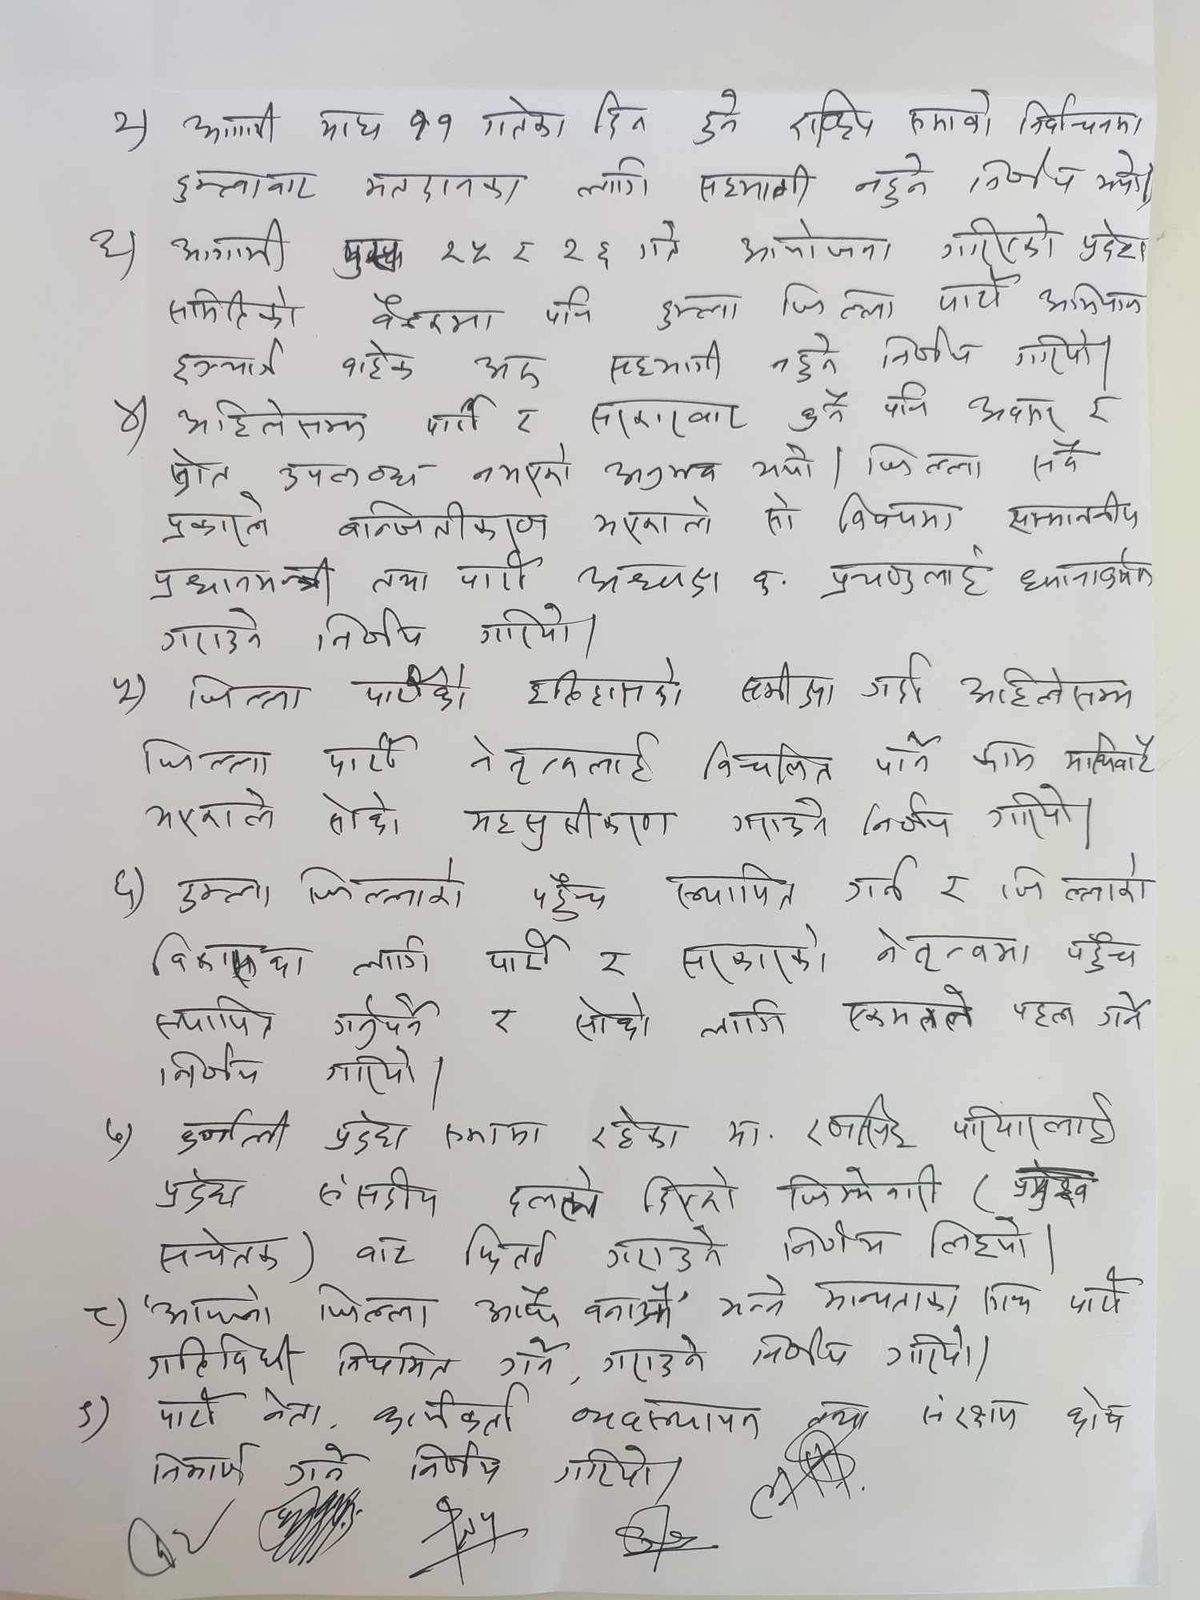 २) आगामी माघ ११ गतेका दिन हुने राष्ट्रिय सभाको निर्वाचनमा
हुम्लाबाट मतदानका लागि सहभागी नहुने निर्णय भयो।
३) आगामी पुस २५ र २६ गते आयोजना गरिएको प्रदेश
समितिको बैठकमा पनि हुम्ला जिल्ला पार्टी
इन्चार्ज बाहेक अरु सहभागी नहुने निर्णय गरियो।
४) अहिलेसम्म पार्टी र सरकारबाट कुनै पनि अवसर र
स्रोत उपलब्ध नभएको अनुभव भयो। जिल्ला सबै
प्रकारले बञ्चितीकरण भएकाले सो विषयमा सम्माननीय
प्रधानमन्त्री तथा पार्टी अध्यक्ष क. प्रचण्डलाई ध्यानाकर्षण
गराउने निर्णय गरियो।
५) जिल्ला पार्टीको इतिहासको समीक्षा गर्दा अहिलेसम्म
जिल्ला पार्टी नेतृत्वलाई विचलित पार्ने काम माथिबाटै
भएकाले सोको महसुसीकरण गराउने निर्णय गरियो।
६) हुम्ला जिल्लाको पहुँच स्थापित गर्न र जिल्लाको
विकासका लागि पार्टी र सरकारको नेतृत्वमा पहुँच
स्थापित गर्नुपर्ने र सोको लागि एकमतले पहल गर्ने
निर्णय गरियो।
७) कर्णाली प्रदेश सभामा रहेका मा. रणसिंह परियारलाई
प्रदेश संसदीय दलले दिएको जिम्मेवारी (प्रमुख
सचेतक) बाट फिर्ता गराउने निर्णय लिइयो।
८) 'आफ्नो जिल्ला आफै बनाऔं' भन्ने मान्यताका साथ पार्टी
गतिविधी नियमित गर्ने, गराउने निर्णय गरियो।
९) पार्टी नेता, कार्यकर्ता व्यवस्थापन तथा संरक्षण कोष
निर्माण गर्ने निर्णय गरियो।